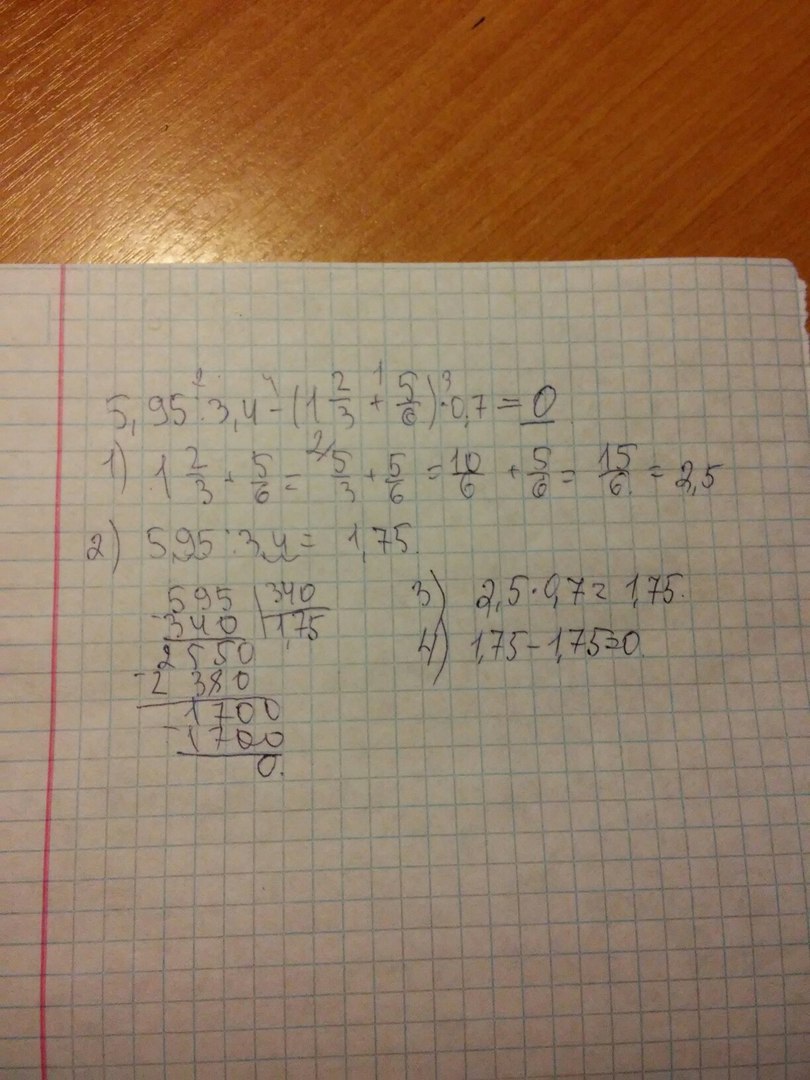 2 4 1 3
5,95:3,4-(1 2/3 + 5/6)·0,7=0
1) 1 2/3 + 5/6 = 2/ 5/3 + 5/6 = 10/6 + 5/6 = 15/6 = 2,5
2) 5,95:3,4= 1,75.
595 | 340
-340 | 1,75
2550
-2 380
1700
-1700
0.
3) 2,5·0,7=1,75.
4) 1,75-1,75=0.